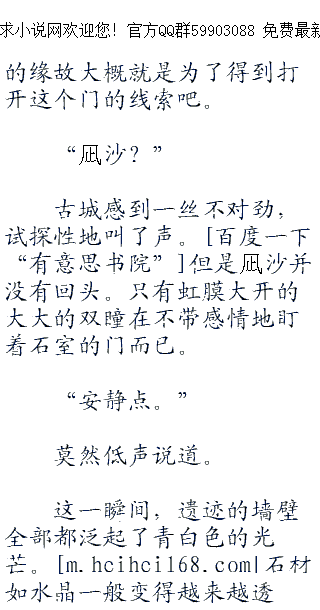 求小说网欢迎您！官方QQ群59903088 免费最新
的缘故大概就是为了得到打
开这个门的线索吧。
“凪沙？”
古城感到一丝不对劲，
试探性地叫了声。[百度一下
“有意思书院”]但是凪沙并
没有回头。只有虹膜大开的
大大的双瞳在不带感情地盯
着石室的门而已。
“安静点。”
莫然低声说道。
这一瞬间，遗迹的墙壁
全部都泛起了青白色的光
芒。[m.hcihci168.com|石材
如水晶一般变得越来越透